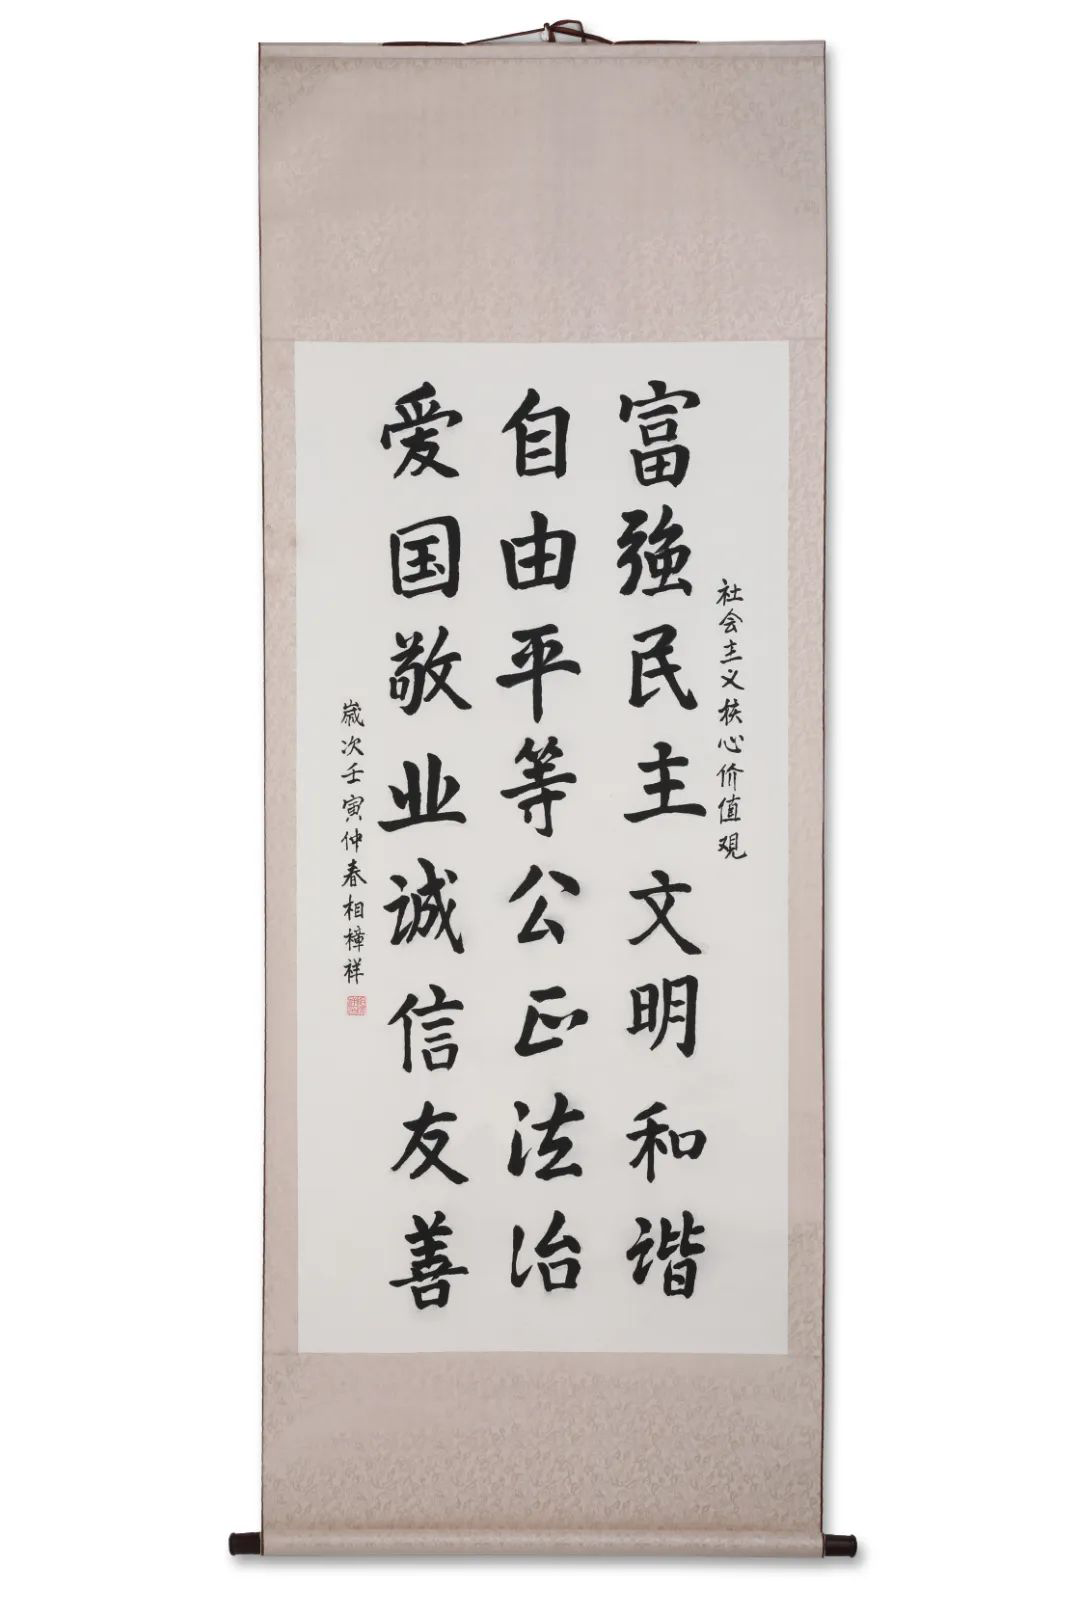 社会主义核心价值观
富強民主文明和谐
自由平等公正法治
爱国敬业诚信友善
歲次壬寅仲春相樟祥